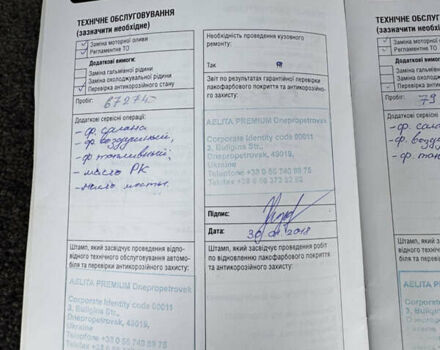 ТЕХНІЧНЕ ОБСЛУГОВУВАННЯ
(зазначити необхідне)
Заміна моторної оливи
Регламентне ТО
Додаткові вимоги:
Заміна гальмівної рідини
Заміна охолоджувальної рідини
Перевірка антикорозійного стану
Пробіг: 67274
Додаткові сервісні операції:
- ф. салона
- ф. воздушный,
- ф. топливный,
- масло РК
- масло мосты.
Штамп, який засвідчує проведення відпо-
відного технічного обслуговування автомо-
біля та перевірки антикорозійного захисту:
AELITA PREMIUM Dnepropetrovsk
Corporate Identity code 00011
3, Buligina Str.,
Dnepropetrovsk, 49019,
Ukraine
Необхідність проведення кузовного
ремонту:
Так
Звіт по результатах гарантійної перевірки
лакофарбового покриття та антикорозійно-
го захисту:
AELITA PREMIUM Dnepropetrovsk
Corporate Identity code 00011
3, Buligina Str.,
Dnepropetrovsk, 49019,
Ukraine
Підпис:
Дата:
Штамп, який засвідчує проведення робіт
по відновленню лакофарбового покриття
та антикорозійного захисту:
ТЕХНІЧНЕ ОБ
(зазначити н
Заміна мот
Регламентн
Додаткові в
Заміна галь
Заміна охол
Перевірка а
Пробіг: 79
Додаткові серві
- ф. сал
- ф. возд
- ф. топ
Штамп, який
відного техн
біля та пере
AELITA PR
Corporate